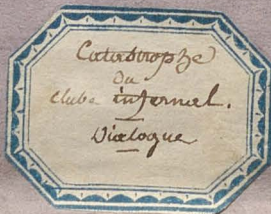 Catastrophe
du
clube infernal.
Dialogue